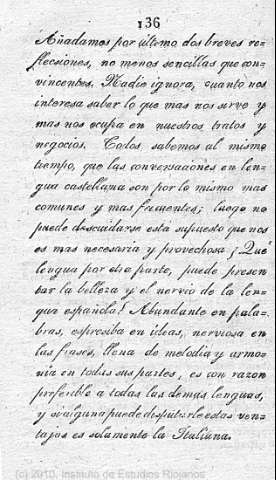 136
Añadamos por último dos breves re-
flecsiones, no menos sencillas que con-
vincentes. Nadie ignora, cuanto nos
interesa saber lo que mas nos sirve y
mas nos ocupa en nuestros tratos y
negocios. Todos sabemos al mismo
tiempo, que las conversaciones en len-
gua castellana son por lo mismo mas
comunes y mas frecuentes; luego no
puede descuidarse esta supuesto que nos
es mas necesaria y provechosa ¡Qué
lengua por otra parte, puede presen
tar la belleza y el nervio de la len-
gua española! Abundante en pala-
bras, expresiba en ideas, nerviosa en
las frases, llena de melodia y armo-
nia en todas sus partes, es con razon
preferible a todas las demas lenguas,
y si alguna puede disputarle estas ven-
tajas es solamente la Italiana.
(c) 2010, Instituto de Estudios Riojanos